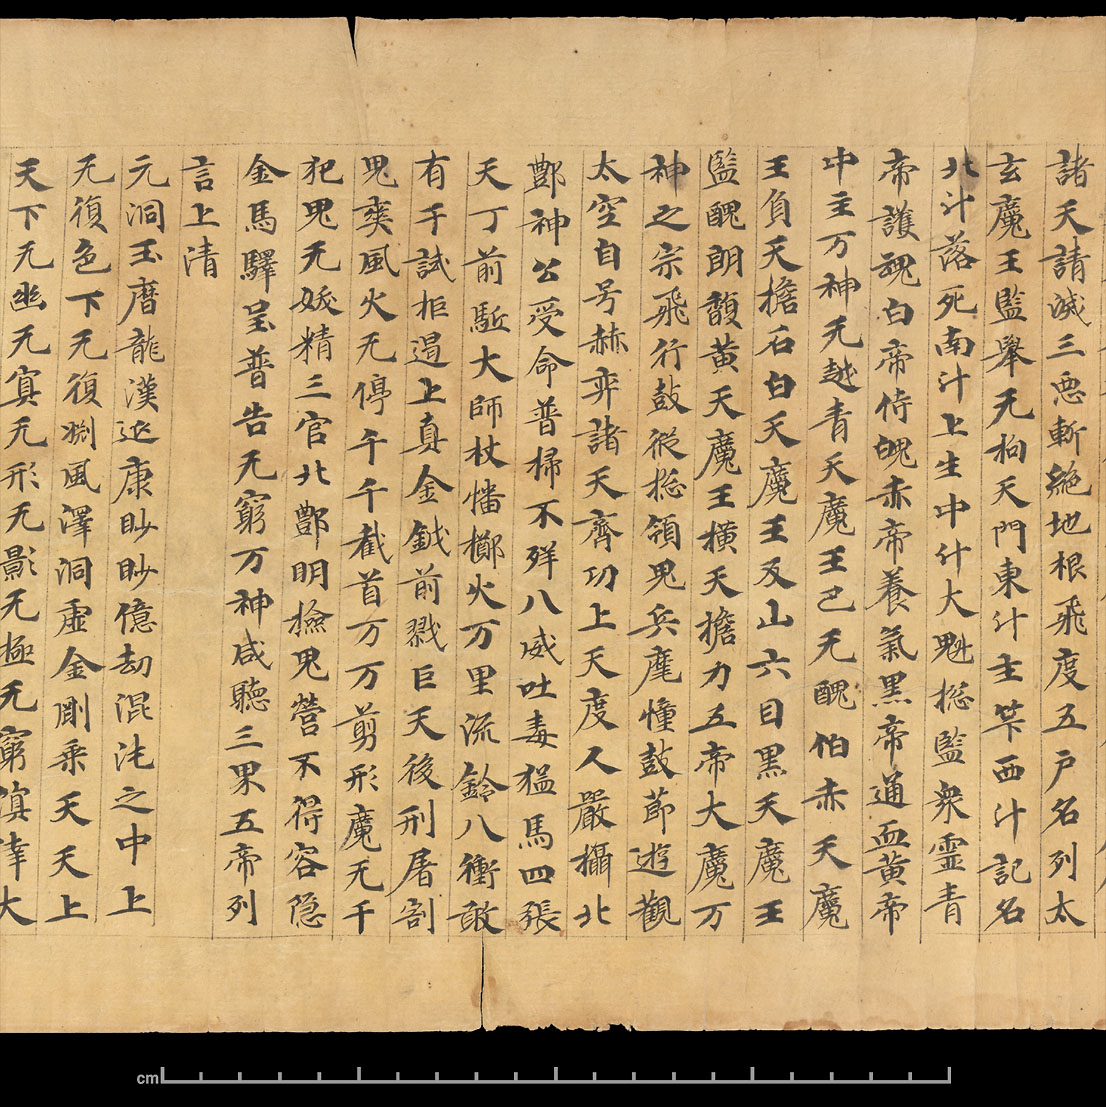 諸天請滅三惡斬絶地根飛度五户名列太
玄魔王監舉无拘天門東斗主筭西斗記名
北斗落死南斗上生中斗大魁揔監衆靈青
帝護魂白帝侍魄赤帝養氣黑帝通血黄帝
中主万神无越青天魔王巴无醜伯赤天魔
王負天擔石白天魔王反山六目黑天魔王
監醜朗馥黄天魔王横天擔力五帝大魔万
神之宗飛行鼓從揔領鬼兵麾幢鼓節遊觀
太空自号赫弈諸天齊功上天度人嚴攝北
酆神公受命普掃不祥八威吐毒猛馬四張
天丁前駈大師杖幡擲火万里流鈴八衝敢
有干試拒遏上真金鉞前戮巨天後刑屠割
鬼爽風火无停千千截首万万剪形魔无干
犯鬼无妖精三官北酆明檢鬼營不得容隐
金馬驛呈普告无窮万神咸聽三界五帝列
言上清
元洞玉曆龍漢延康眇眇億劫混沌之中上
无復色下无復渕風澤洞虛金剛乘天天上
天下无幽无冥无形无影无極无窮溟涬大
cm